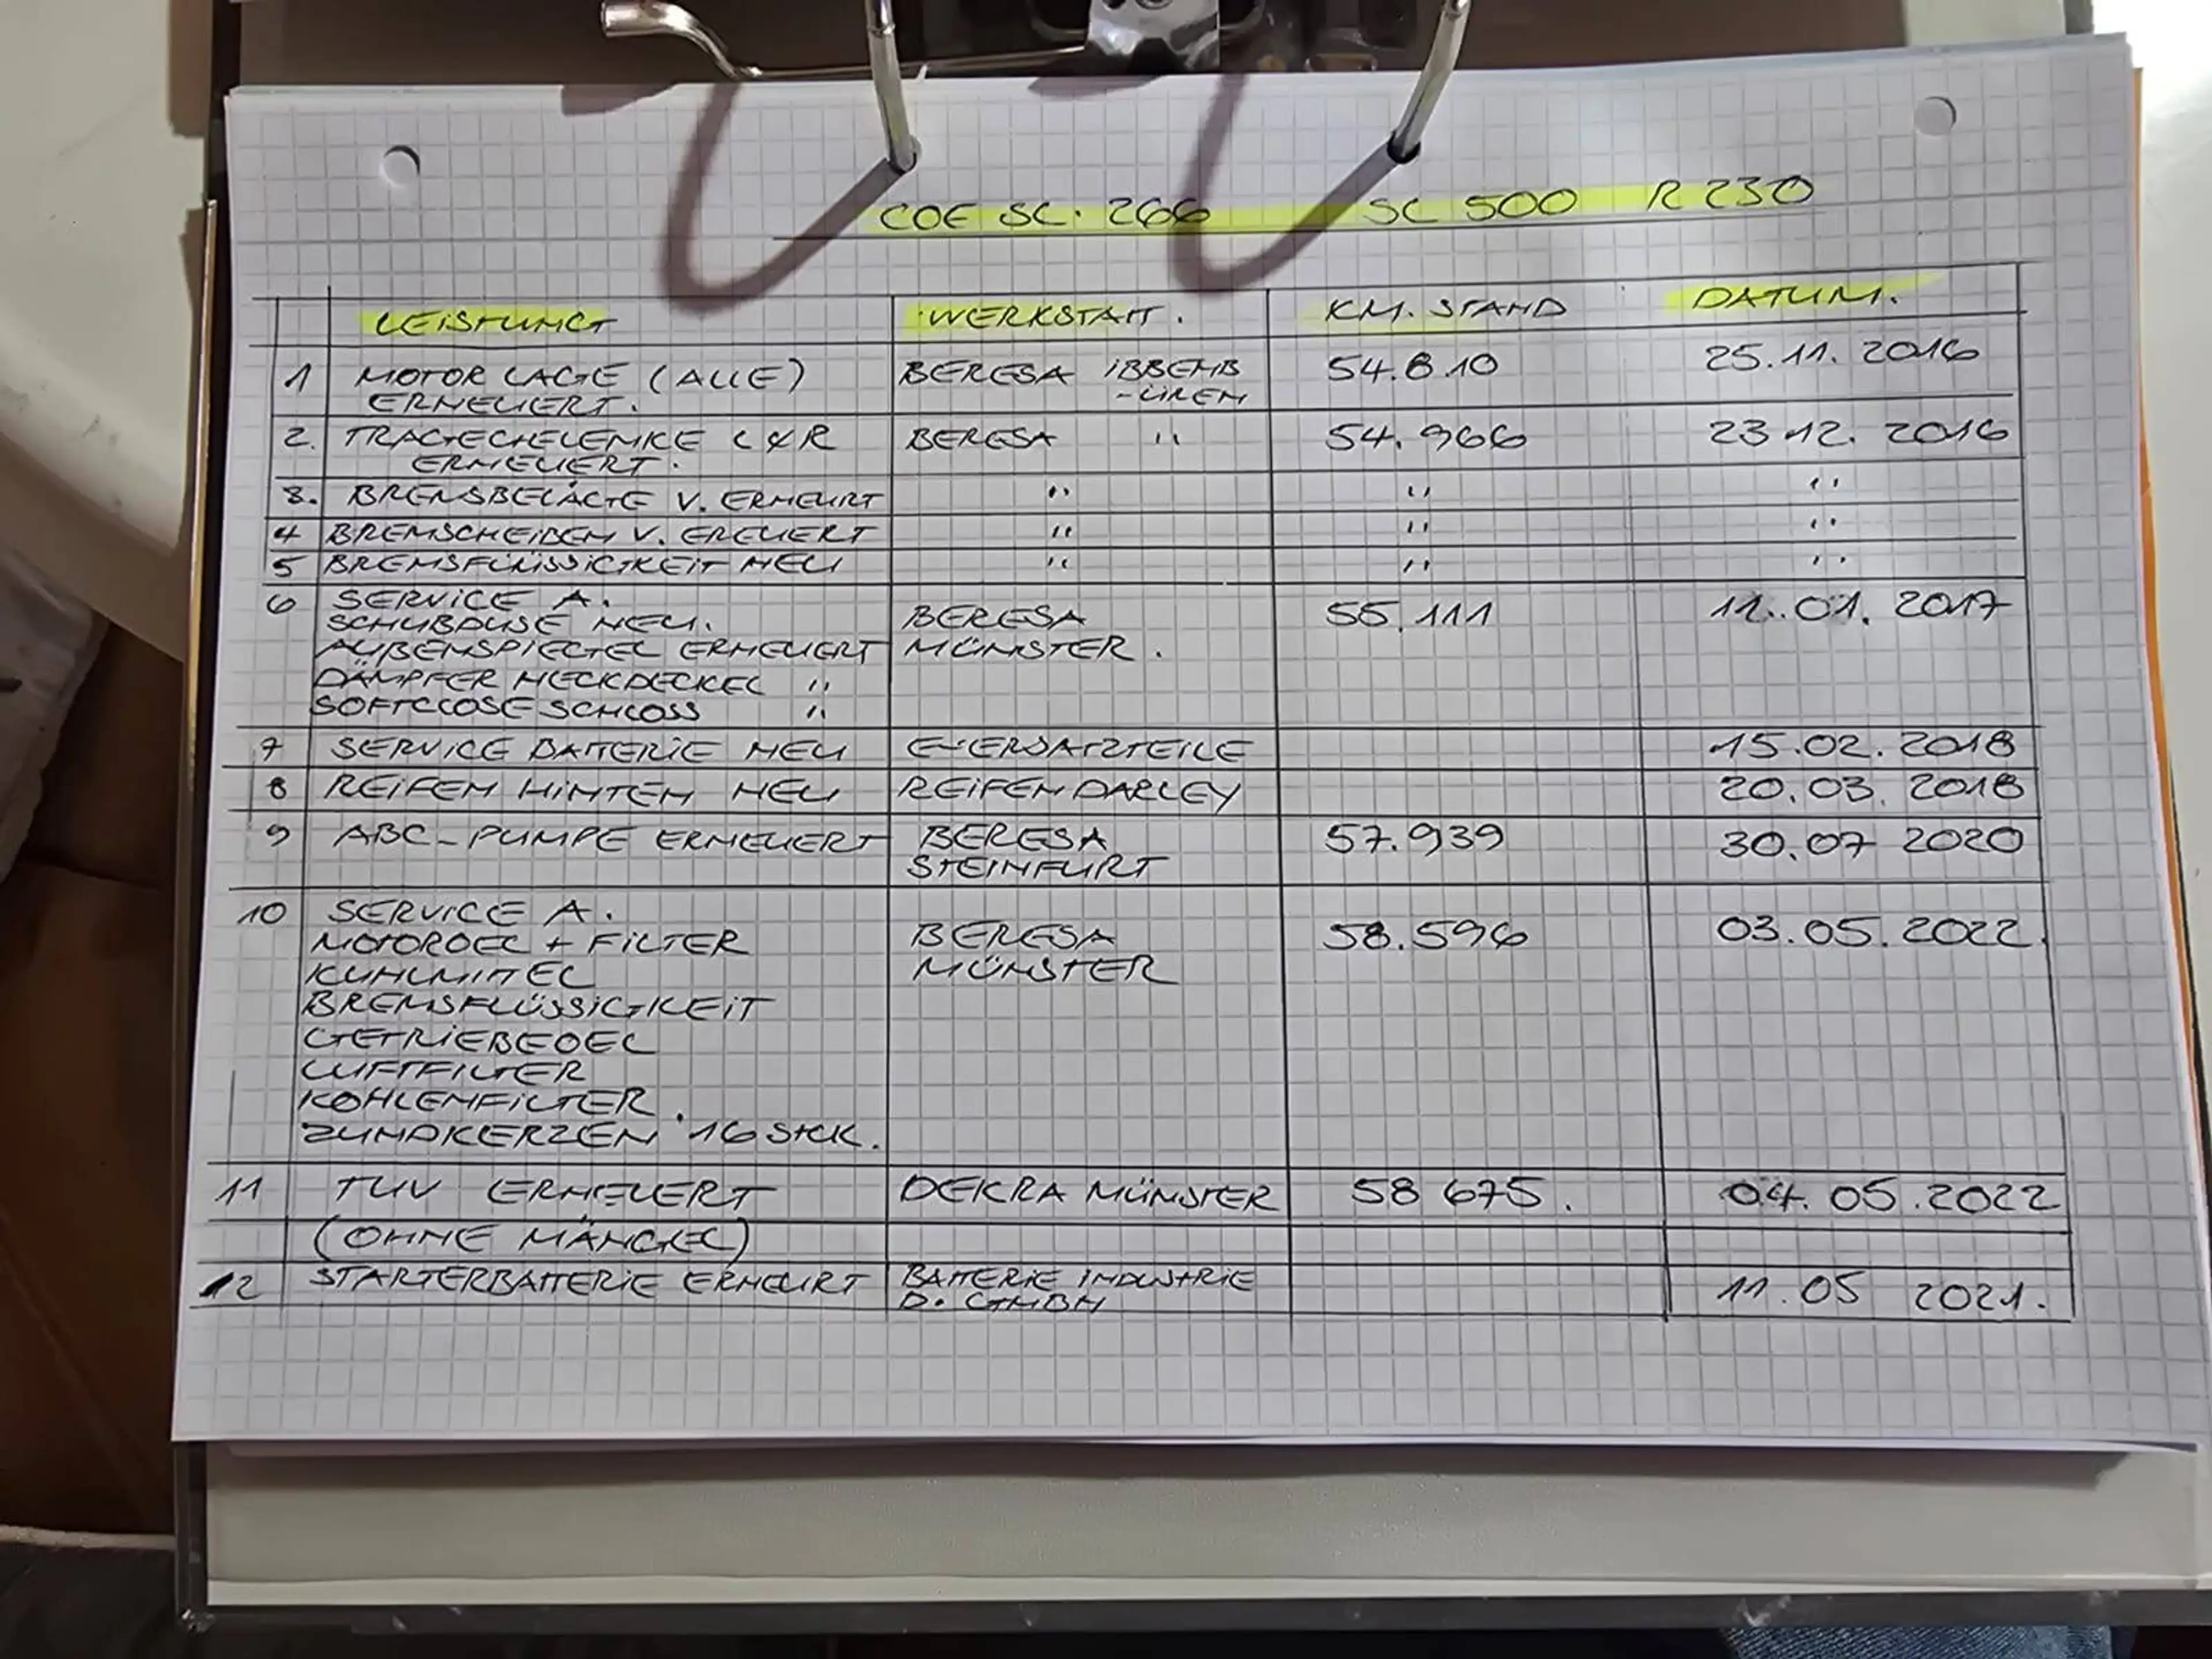 COE SL. 266 SL 500 R 230
LEISTUNG WERKSTATT. KM. STAND DATUM.
1 MOTOR LAGE (ALLE) BERESA IBBENB 54.810 25.11.2016
ERNEUERT. -ÜREN
2. TRAGEGELENKE L & R BERESA " 54.966 23 12. 2016
ERNEUERT.
3. BREMSBELÄGE V. ERNEURT " " "
4 BREMSCHEIBEN V. EREUERT " " "
5 BREMSFLÜSSIGKEIT NEU " " "
6 SERVICE A. BERESA 55.111 11.01.2017
SCHUBDÜSE NEU. MÜNSTER.
AUßENSPIEGEL ERNEUERT
DÄMPFER HECKDECKEL "
SOFTCLOSE SCHLOSS "
7 SERVICE BATTERIE NEU E-ERSATZTEILE 15.02.2018
8 REIFEN HINTEN NEU REIFEN DARLEY 20.03.2018
9 ABC-PUMPE ERNEUERT BERESA 57.939 30.07 2020
STEINFURT
10 SERVICE A. BERESA 58.596 03.05.2022.
MOTOROEL + FILTER MÜNSTER
KUHLMITTEL
BREMSFLÜSSIGKEIT
GETRIEBEOEL
LUFTFILTER
KOHLENFILTER.
ZUNDKERZEN 16 STCK.
11 TUV ERNEUERT DEKRA MÜNSTER 58 675. 04.05.2022
(OHNE MÄNGEL)
12 STARTERBATTERIE ERNEURT BATTERIE INDUSTRIE 11.05 2021.
D. GMBH